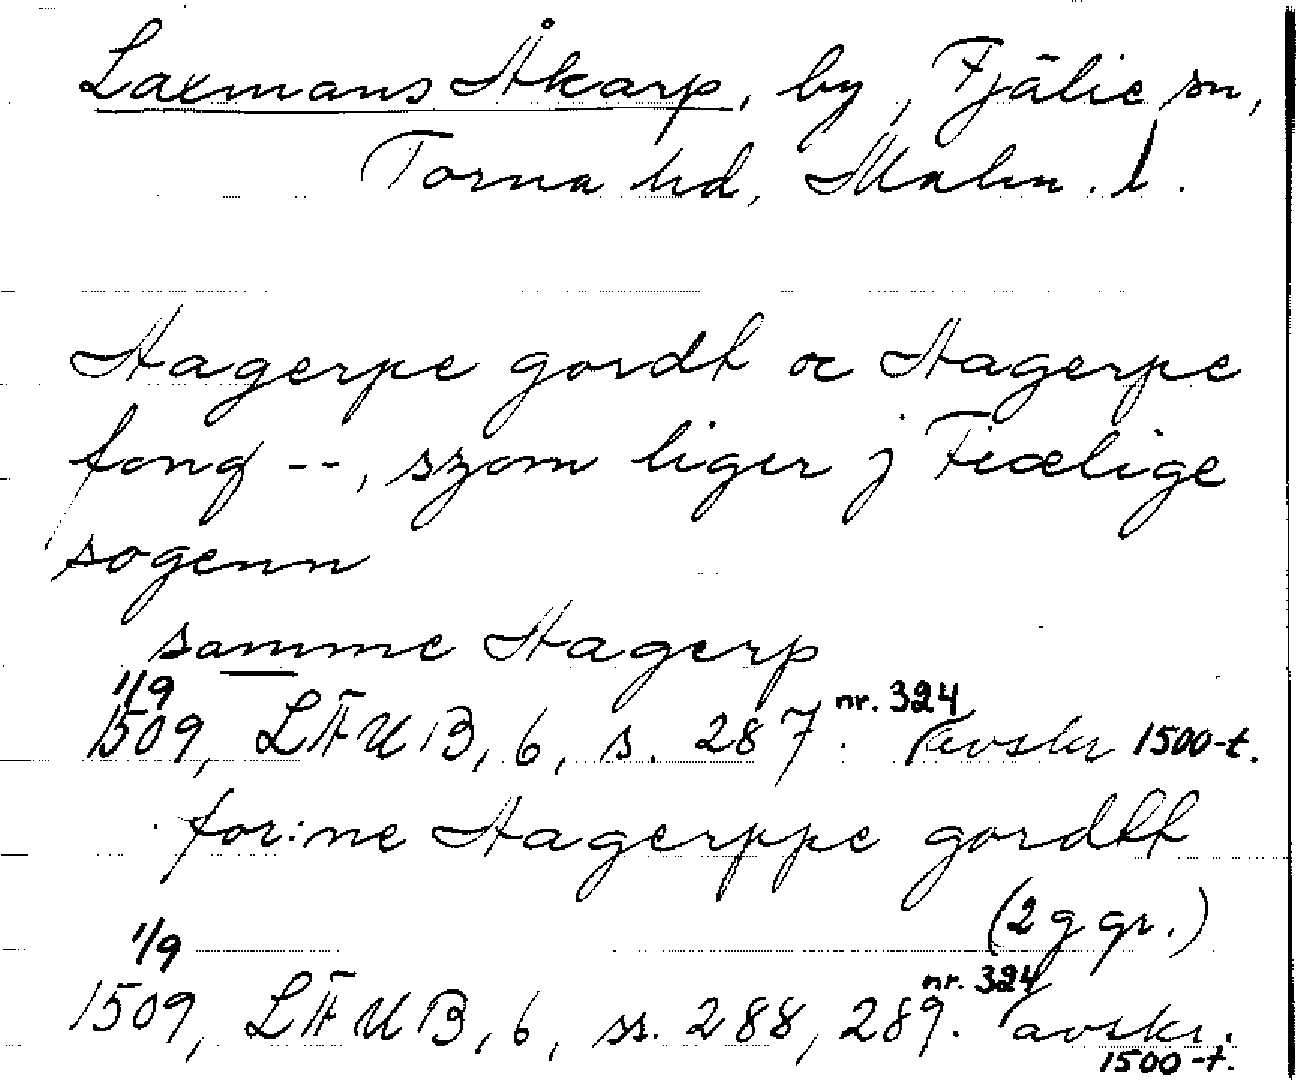 Laxmans Åkarp, by, Fjälie sn,
Torna hd, Malm. l.
Hagerpe gordt oc Hagerpe
fong --, szom liger j Fiælige
sogenn
samme Hagerp
1/9
1509, LÄUB, 6, s. 287. nr. 324 avskr 1500-t.
for:ne Hagerppe gordtt
(2 ggr.)
1/9
1509, LÄUB, 6, ss. 288, 289. nr. 324 avskr.
1500-t.